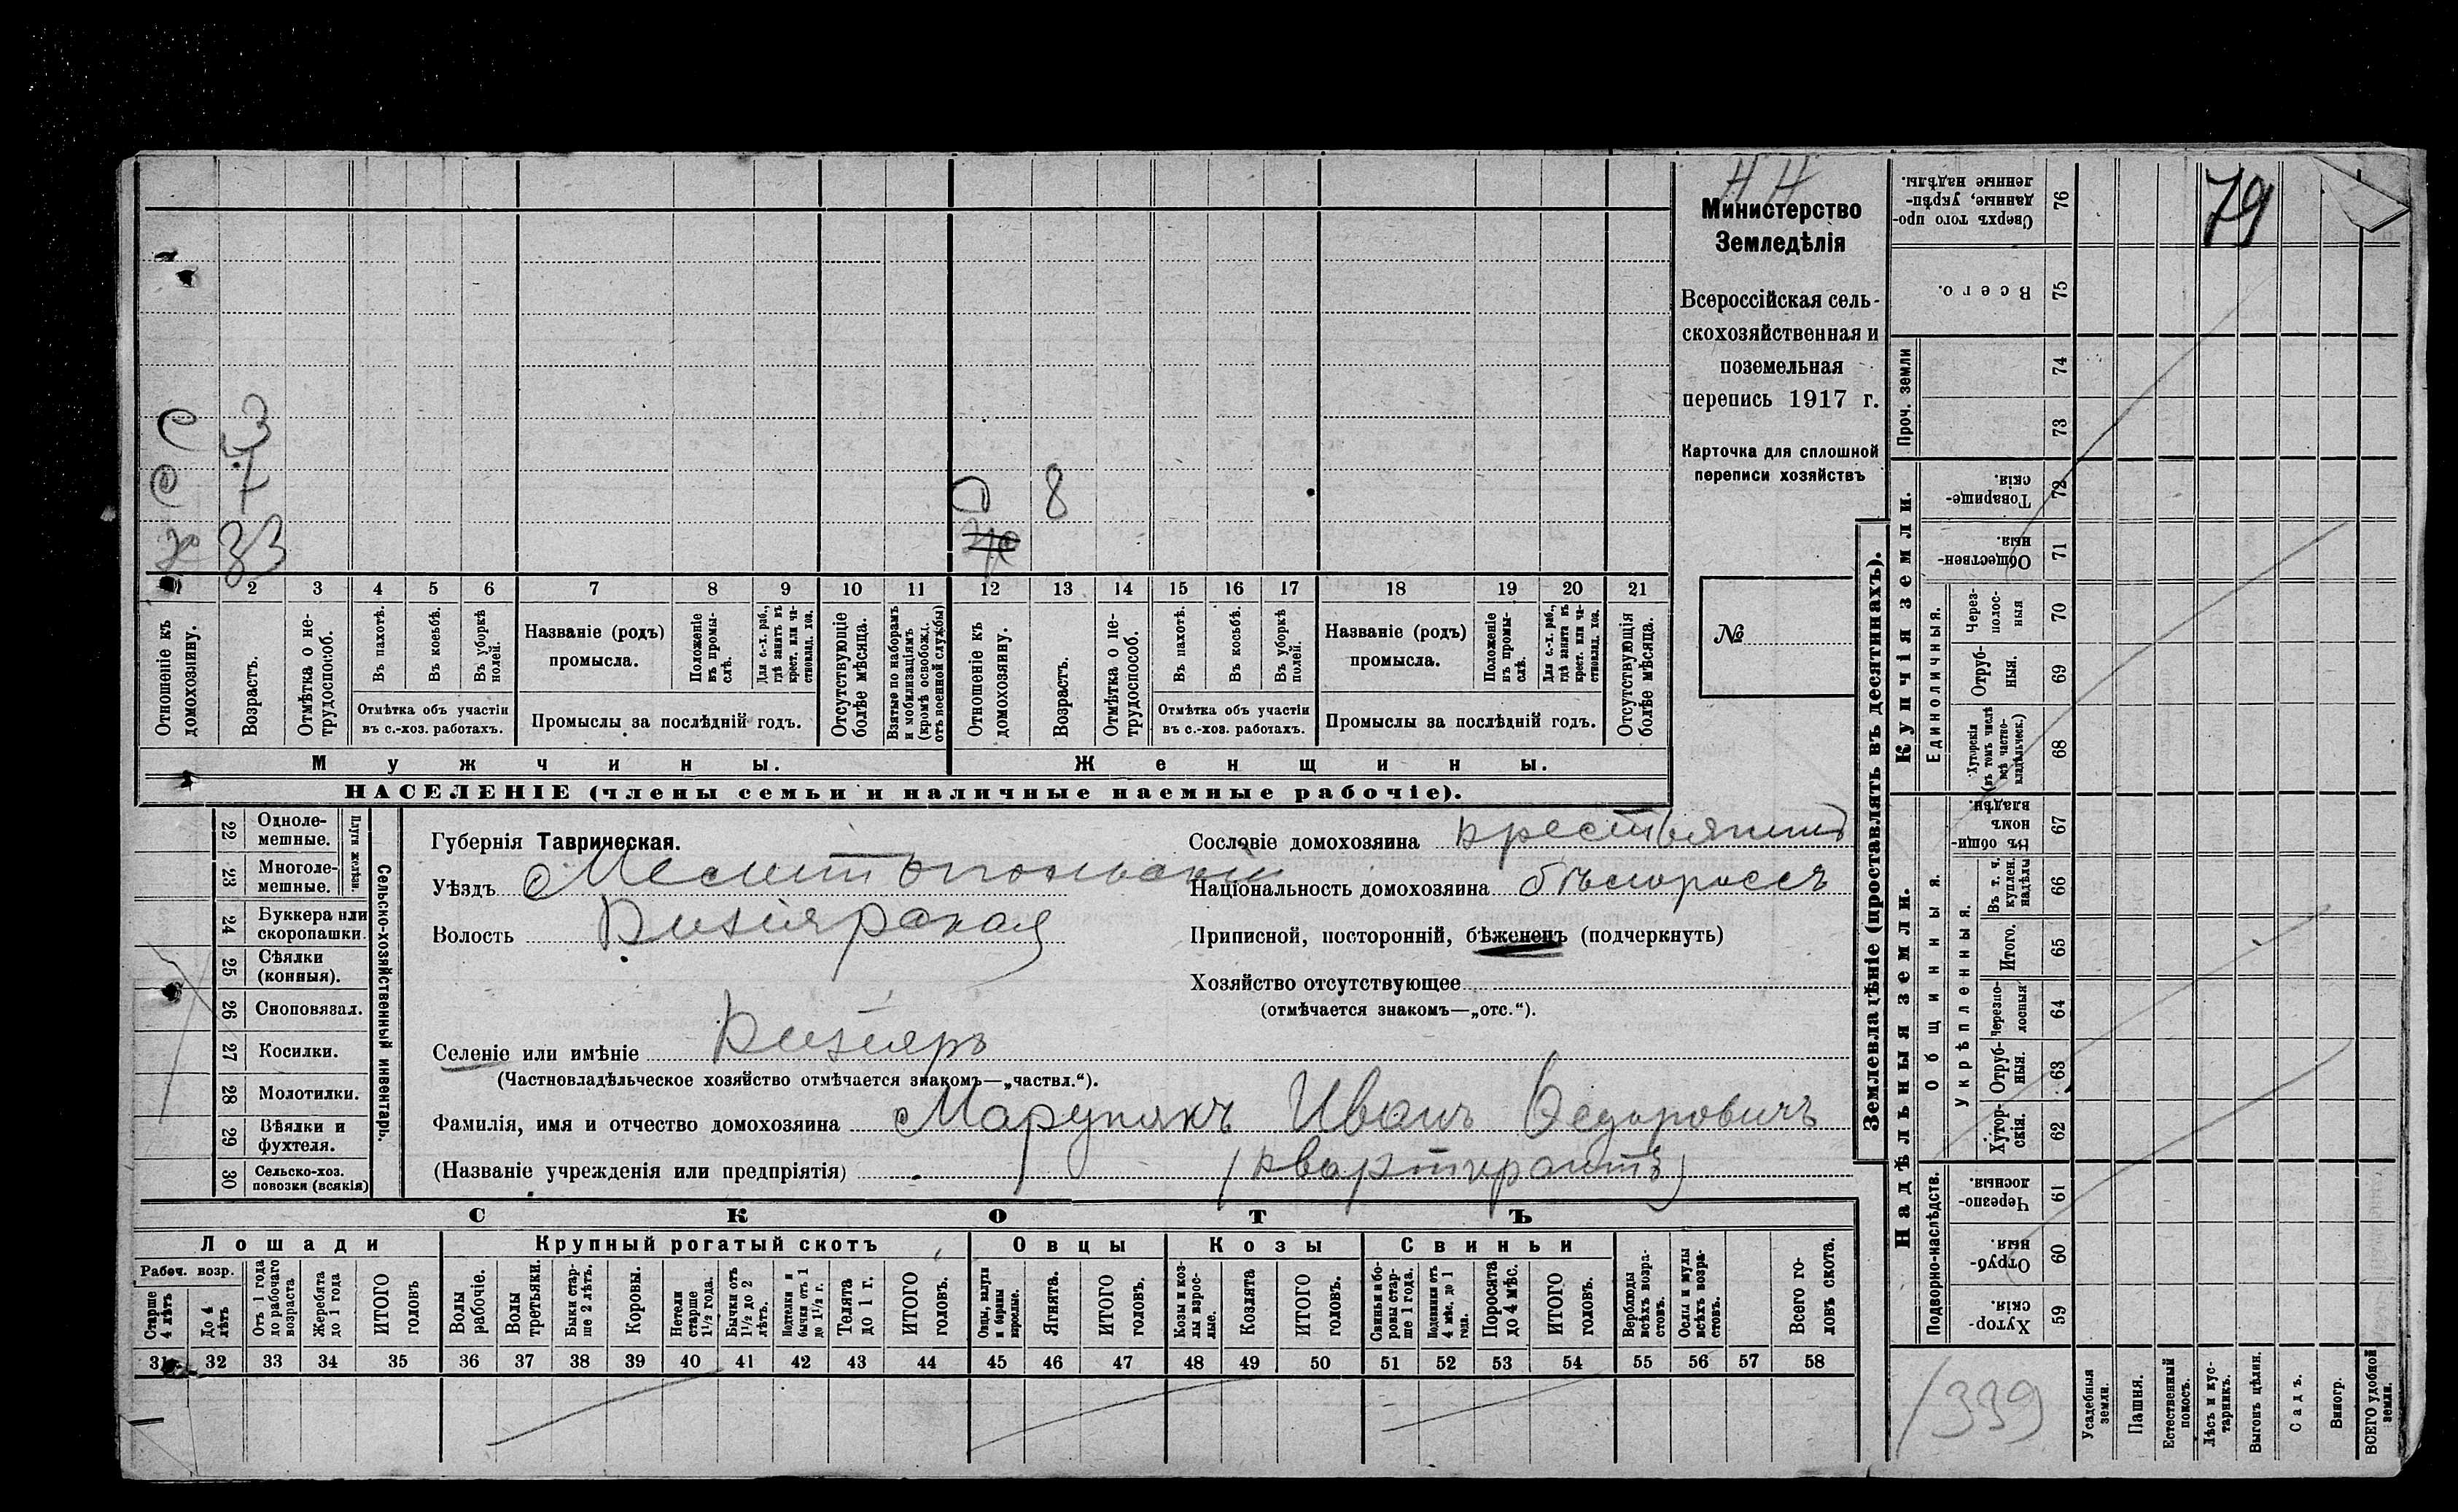 Н Н
79
Министерство
Земледѣлія
Всероссійская сель-
скохозяйственная и
поземельная
перепись 1917 г.
Карточка для сплошной
переписи хозяйствъ
№
С 3
С 7
Х 33
Д 8
1 2 3 4 5 6 7 8 9 10 11 12 13 14 15 16 17 18 19 20 21
Отношеніе къ домохозяину.
Возрастъ.
Отмѣтка о не-трудоспособ.
Въ пахотѣ.
Въ косьбѣ.
Въ уборкѣ полей.
Отмѣтка объ участіи въ с.-хоз. работахъ.
Названіе (родъ) промысла.
Положеніе въ промы-слѣ.
Для с.-х. раб., гдѣ занятъ въ крест. или ча-стновлад. хоз.
Промыслы за послѣдній годъ.
Отсутствующіе болѣе мѣсяца.
Взятые по наборамъ и мобилизаціямъ (кромѣ освобожд. отъ военной службы)
Отношеніе къ домохозяину.
Возрастъ.
Отмѣтка о не-трудоспособ.
Въ пахотѣ.
Въ косьбѣ.
Въ уборкѣ полей.
Отмѣтка объ участіи въ с.-хоз. работахъ.
Названіе (родъ) промысла.
Положеніе въ промы-слѣ.
Для с.-х. раб., гдѣ занята въ крест. или ча-стновлад. хоз.
Промыслы за послѣдній годъ.
Отсутствующія болѣе мѣсяца.
Мужчины.
Женщины.
НАСЕЛЕНІЕ (члены семьи и наличные наемные рабочіе).
22 Одноле-мешные.
23 Многоле-мешные.
Плуги желѣзн.
24 Буккера или скоропашки.
25 Сѣялки (конныя).
26 Сноповязал.
27 Косилки.
28 Молотилки.
29 Вѣялки и фухтеля.
30 Сельско-хоз. повозки (всякія)
Сельско-хозяйственный инвентарь.
Губернія Таврическая.
Уѣздъ Мелитопольскій
Волость Кизіярская
Селеніе или имѣніе Кизіяръ
(Частновладѣльческое хозяйство отмѣчается знакомъ—„частвл.“).
Фамилія, имя и отчество домохозяина Марунякъ Иванъ Федоровичъ
(Названіе учрежденія или предпріятія) (квартирантъ)
Сословіе домохозяина крестьянинъ
Національность домохозяина бѣлороссъ
Приписной, посторонній, бѣженецъ (подчеркнуть)
Хозяйство отсутствующее
(отмѣчается знакомъ—„отс.“).
СКОТЪ
Лошади
Крупный рогатый скотъ
Овцы
Козы
Свиньи
Рабоч. возр.
Старше 4 лѣтъ
До 4 лѣтъ
Отъ 1 года до рабочаго возраста
Жеребята до 1 года
ИТОГО головъ
Волы рабочіе.
Волы третьяки.
Быки стар-ше 2 лѣтъ.
Коровы.
Нетели старше 1½ года.
Бычки отъ 1½ до 2 лѣтъ.
Подтелки и бычки отъ 1 до 1½ г.
Телята до 1 г.
ИТОГО головъ.
Овцы, валухи и бараны взрослые.
Ягнята.
ИТОГО головъ.
Козы и коз-лы взрос-лые.
Козлята
ИТОГО головъ.
Свиньи и бо-ровы стар-ше 1 года.
Подсвинки отъ 4 мѣс. до 1 года.
Поросята до 4 мѣс.
ИТОГО головъ.
Верблюды всѣхъ возра-стовъ.
Ослы и мулы всѣхъ возра-стовъ.
Всего го-ловъ скота.
31 32 33 34 35 36 37 38 39 40 41 42 43 44 45 46 47 48 49 50 51 52 53 54 55 56 57 58
Землевладѣніе (проставлять въ десятинахъ).
Надѣльныя земли.
Купчія земли.
Проч. земли
Подворно-наслѣдств.
Общинныя.
Укрѣпленныя.
Единоличныя.
76 Сверхъ того про-данные, укрѣп-ленные надѣлы.
75 Всего.
74
73
72 Товарище-скія.
71 Обществен-ныя.
70 Через-полос-ныя
69 Отруб-ныя.
68 Хуторскія (въ томъ числѣ всѣ частно-владѣльческ.)
67 Въ общин-номъ владѣн.
66 Въ т. ч. куплен. надѣлы
65 Итого.
64 Черезпо-лосныя
63 Отруб-ныя.
62 Хутор-скія.
61 Черезпо-лосныя.
60 Отруб-ныя.
59 Хутор-скія.
1339
Усадебныя земли.
Пашня.
Естественный покосъ.
Лѣсъ и кус-тарникъ.
Выгонъ цѣлин.
Садъ.
Виногр.
ВСЕГО удобной земли.